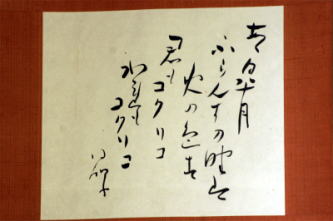 皐月
ふらんすの野は
火の色す
君もコクリコ
われもコクリコ